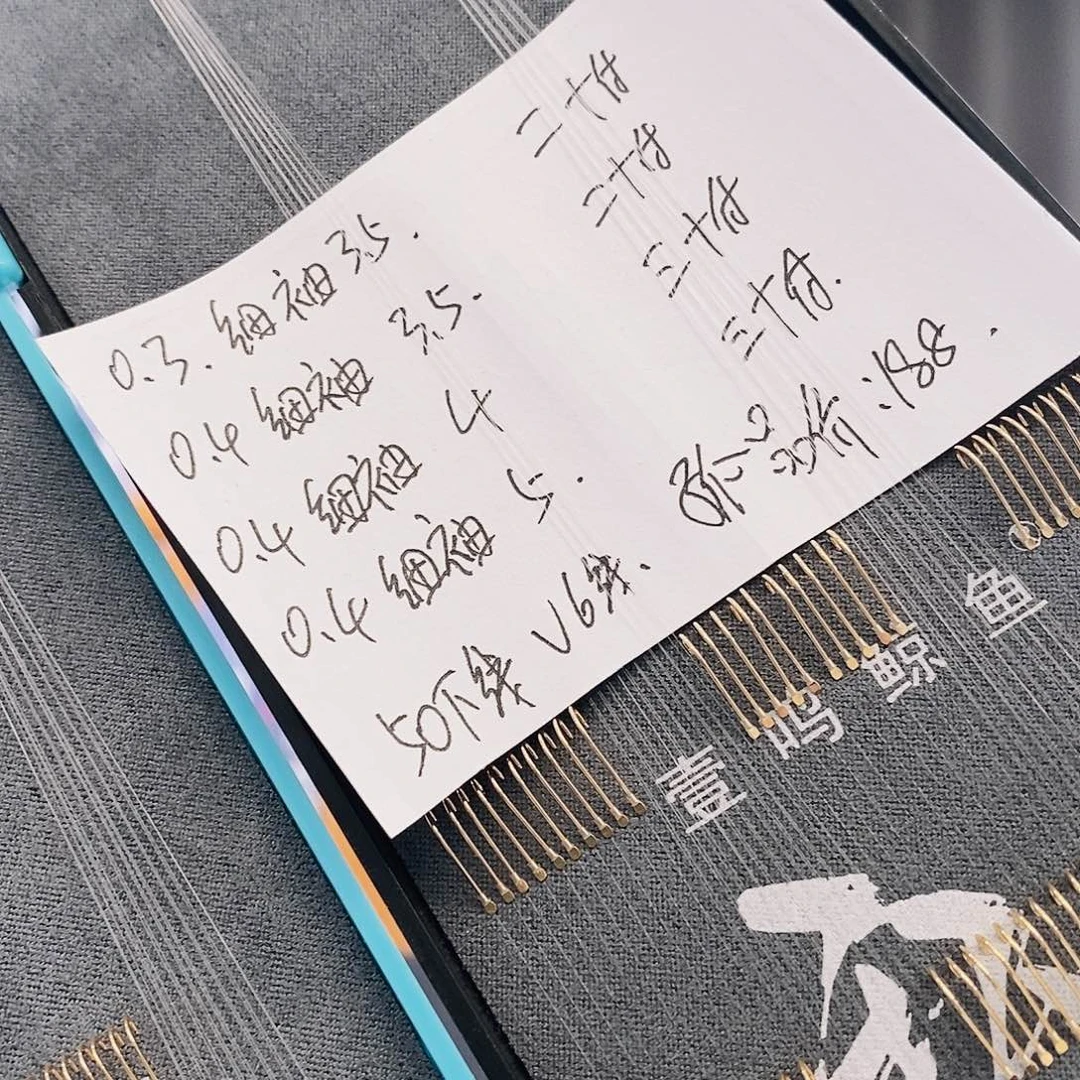 0.3. 细袖 3.5. 二十付
0.4 细袖 3.5. 二十付
0.4 细袖 4 三十付
0.4 细袖 5. 三十付.
50下线 V6线、 价:188.
壹鸣鲸鱼